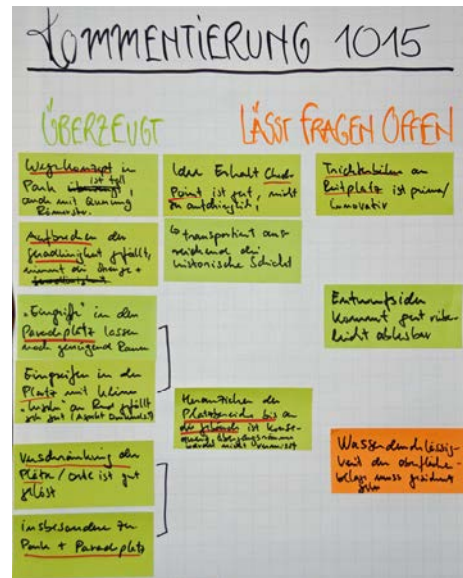 KOMMENTIERUNG 1015
ÜBERZEUGT
LÄSST FRAGEN OFFEN
Wegekonzept in
Park ist toll,
auch mit Querung
Römerstr.
Aufbrechen der
Geradlinigkeit gefällt,
nimmt die Strenge
"Eingriffe" in den
Paradeplatz lassen
noch genügend Raum
Eingreifen in den
Platz mit kleinen
"Inseln" am Rand gefällt
sehr gut (Aspekt Denkmal)
Verschränkung der
Plätze / Orte ist gut
gelöst
insbesondere zu
Park + Paradeplatz
Idee Erhalt Check
Point ist gut, nicht
zu aufdringlich,
↳ transportiert aus-
reichend die
historische Schicht
Heranziehen des
Platzbereichs bis an
die Gebäude ist konse-
quent, Übergangsräume
werden nicht vermisst
Trichterbühne am
Reitplatz ist prima/
innovativ
Entwurfsidee
kommt gut rüber
leicht ablesbar
Wasserdurchlässig-
keit der Oberflächen-
beläge muss gesichert
sein